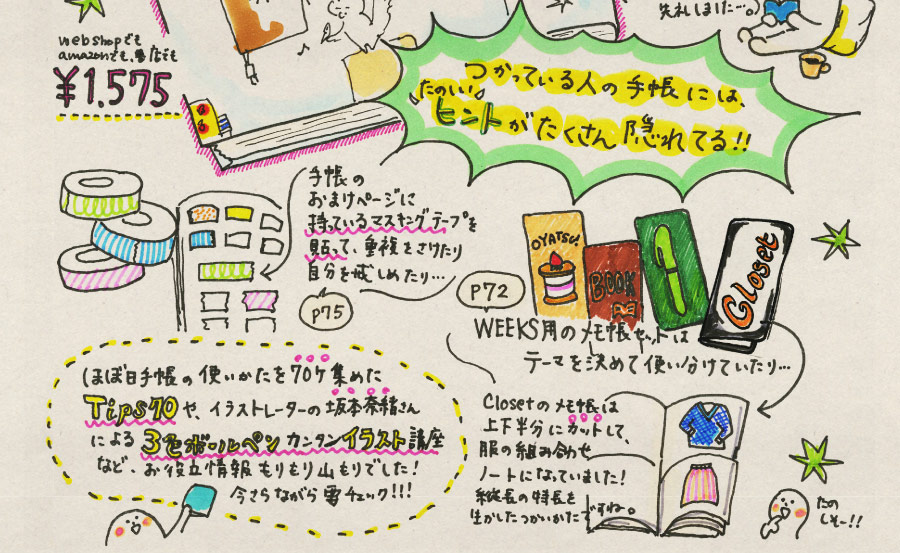 失礼しました…。
webshopでも
amazonでも、書店でも
¥1,575
つかっている人の手帳には、
たのしい！
ヒントがたくさん隠れてる!!
手帳の
おまけページに
持っているマスキングテープを
貼って、重複をさけたり
自分を戒しめたり…
P75
OYATSU!
BOOK
Closet
P72
WEEKS用のメモ帳セットは
テーマを決めて使い分けていたり…
ほぼ日手帳の使いかたを70ケ集めた
Tips70や、イラストレーターの坂本奈緒さん
による3色ボールペンカンタンイラスト講座
など、お役立情報もりもり山もりでした！
今さらながら要チェック!!!
Closetのメモ帳は
上下半分にカットして、
服の組み合わせ
ノートになっていました！
縦長の特長を
生かしたつかいかたですね。
たの
しそー!!